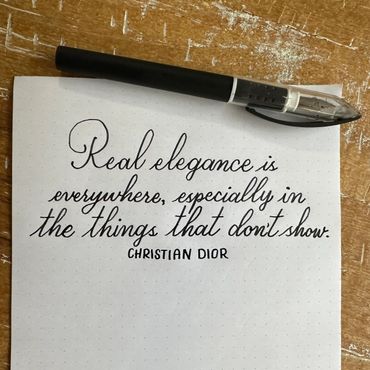 Real elegance is
everywhere, especially in
the things that don't show.
CHRISTIAN DIOR